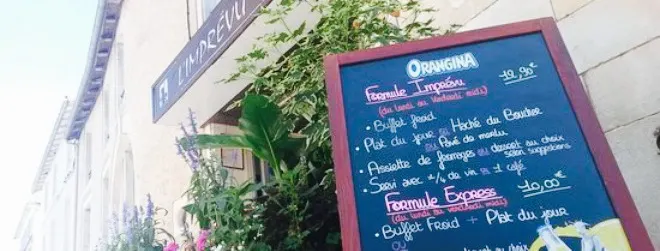 L'IMPRÉVU
ORANGINA
Formule Imprévu 12,90€
(du lundi au vendredi midi)
• Buffet froid
• Plat du jour ou Haché du Boucher
ou Pavé de merlu
• Assiette de fromages ou dessert au choix
selon suggestions
• Servi avec 1/4 de vin et 1 café
Formule Express 10,00€
(du lundi au vendredi midi)
• Buffet Froid + Plat du jour
ou
au choix